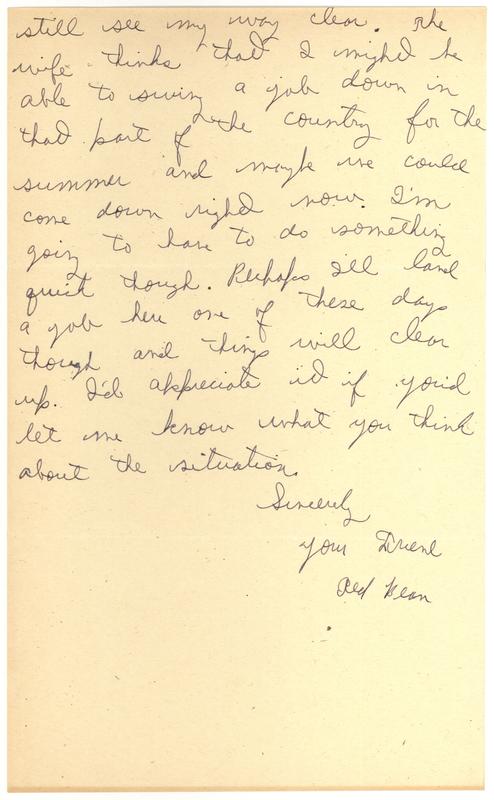 still see my way clear. The
wife thinks that I might be
able to swing a job down in
that part of the country for the
summer and maybe we could
come down right now. I'm
going to have to do something
quick though. Perhaps I'll land
a job here one of these days
though and things will clear
up. I'd appreciate it if you'd
let me know what you think
about the situation.
Sincerely
your Friend
Red Bean